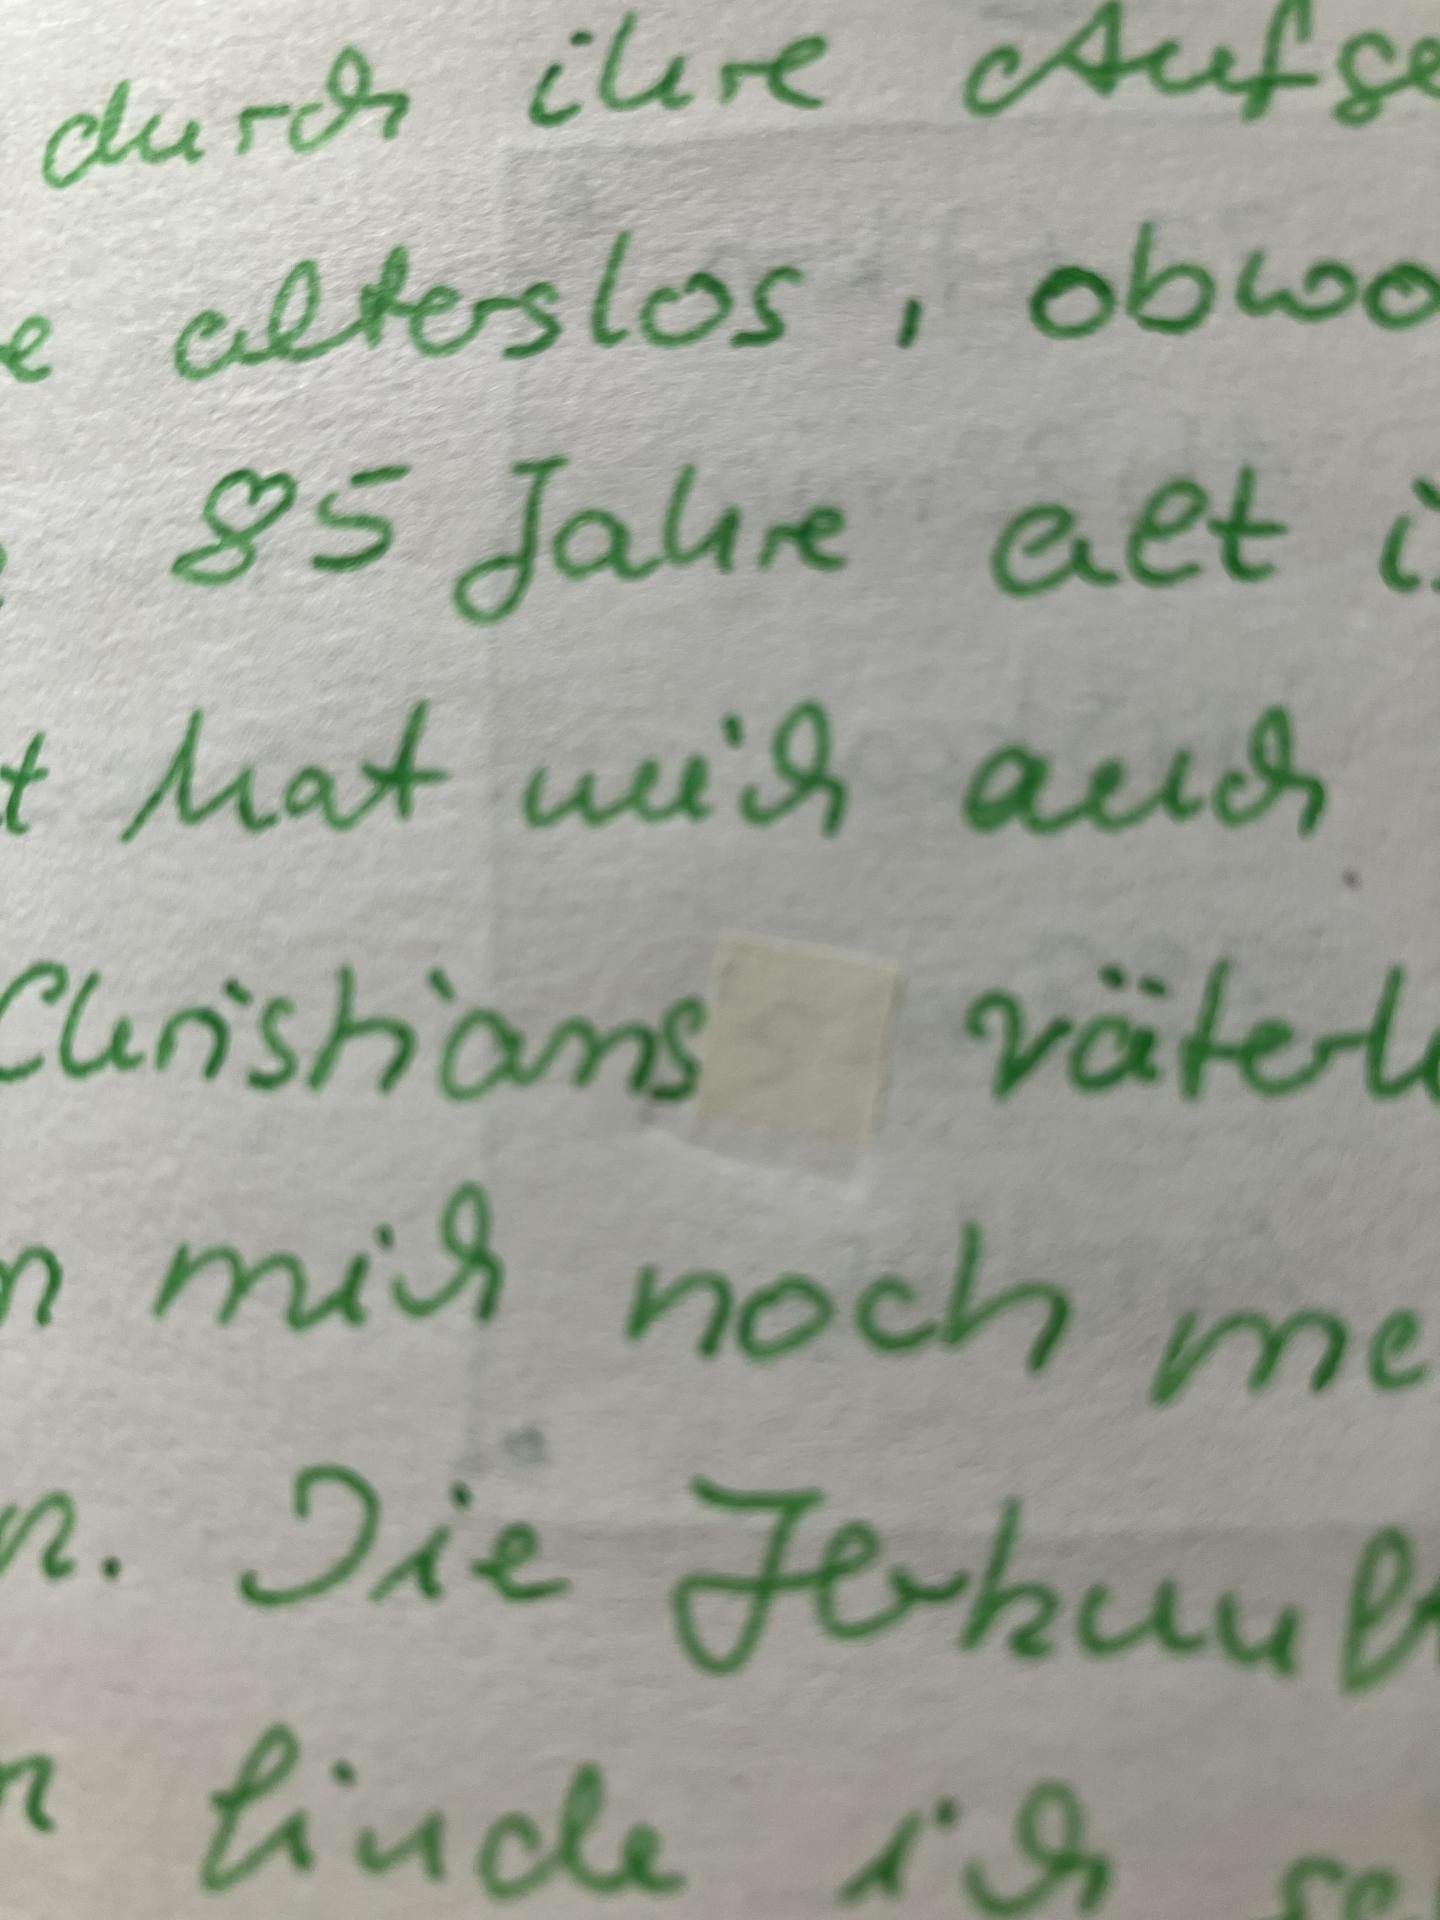 durch ihre Aufge
e alterslos, obwo
85 Jahre alt i
t hat mich auch
Christians väterl
n mich noch me
n. Die Herkunft
n finde ich se